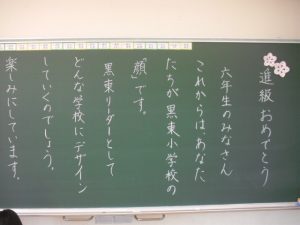 進級おめでとう
六年生のみなさん
これからは、あなた
たちが黒東小学校の
「顔」です。
黒東リーダーとして
どんな学校にデザイン
していくのでしょう。
楽しみにしています。